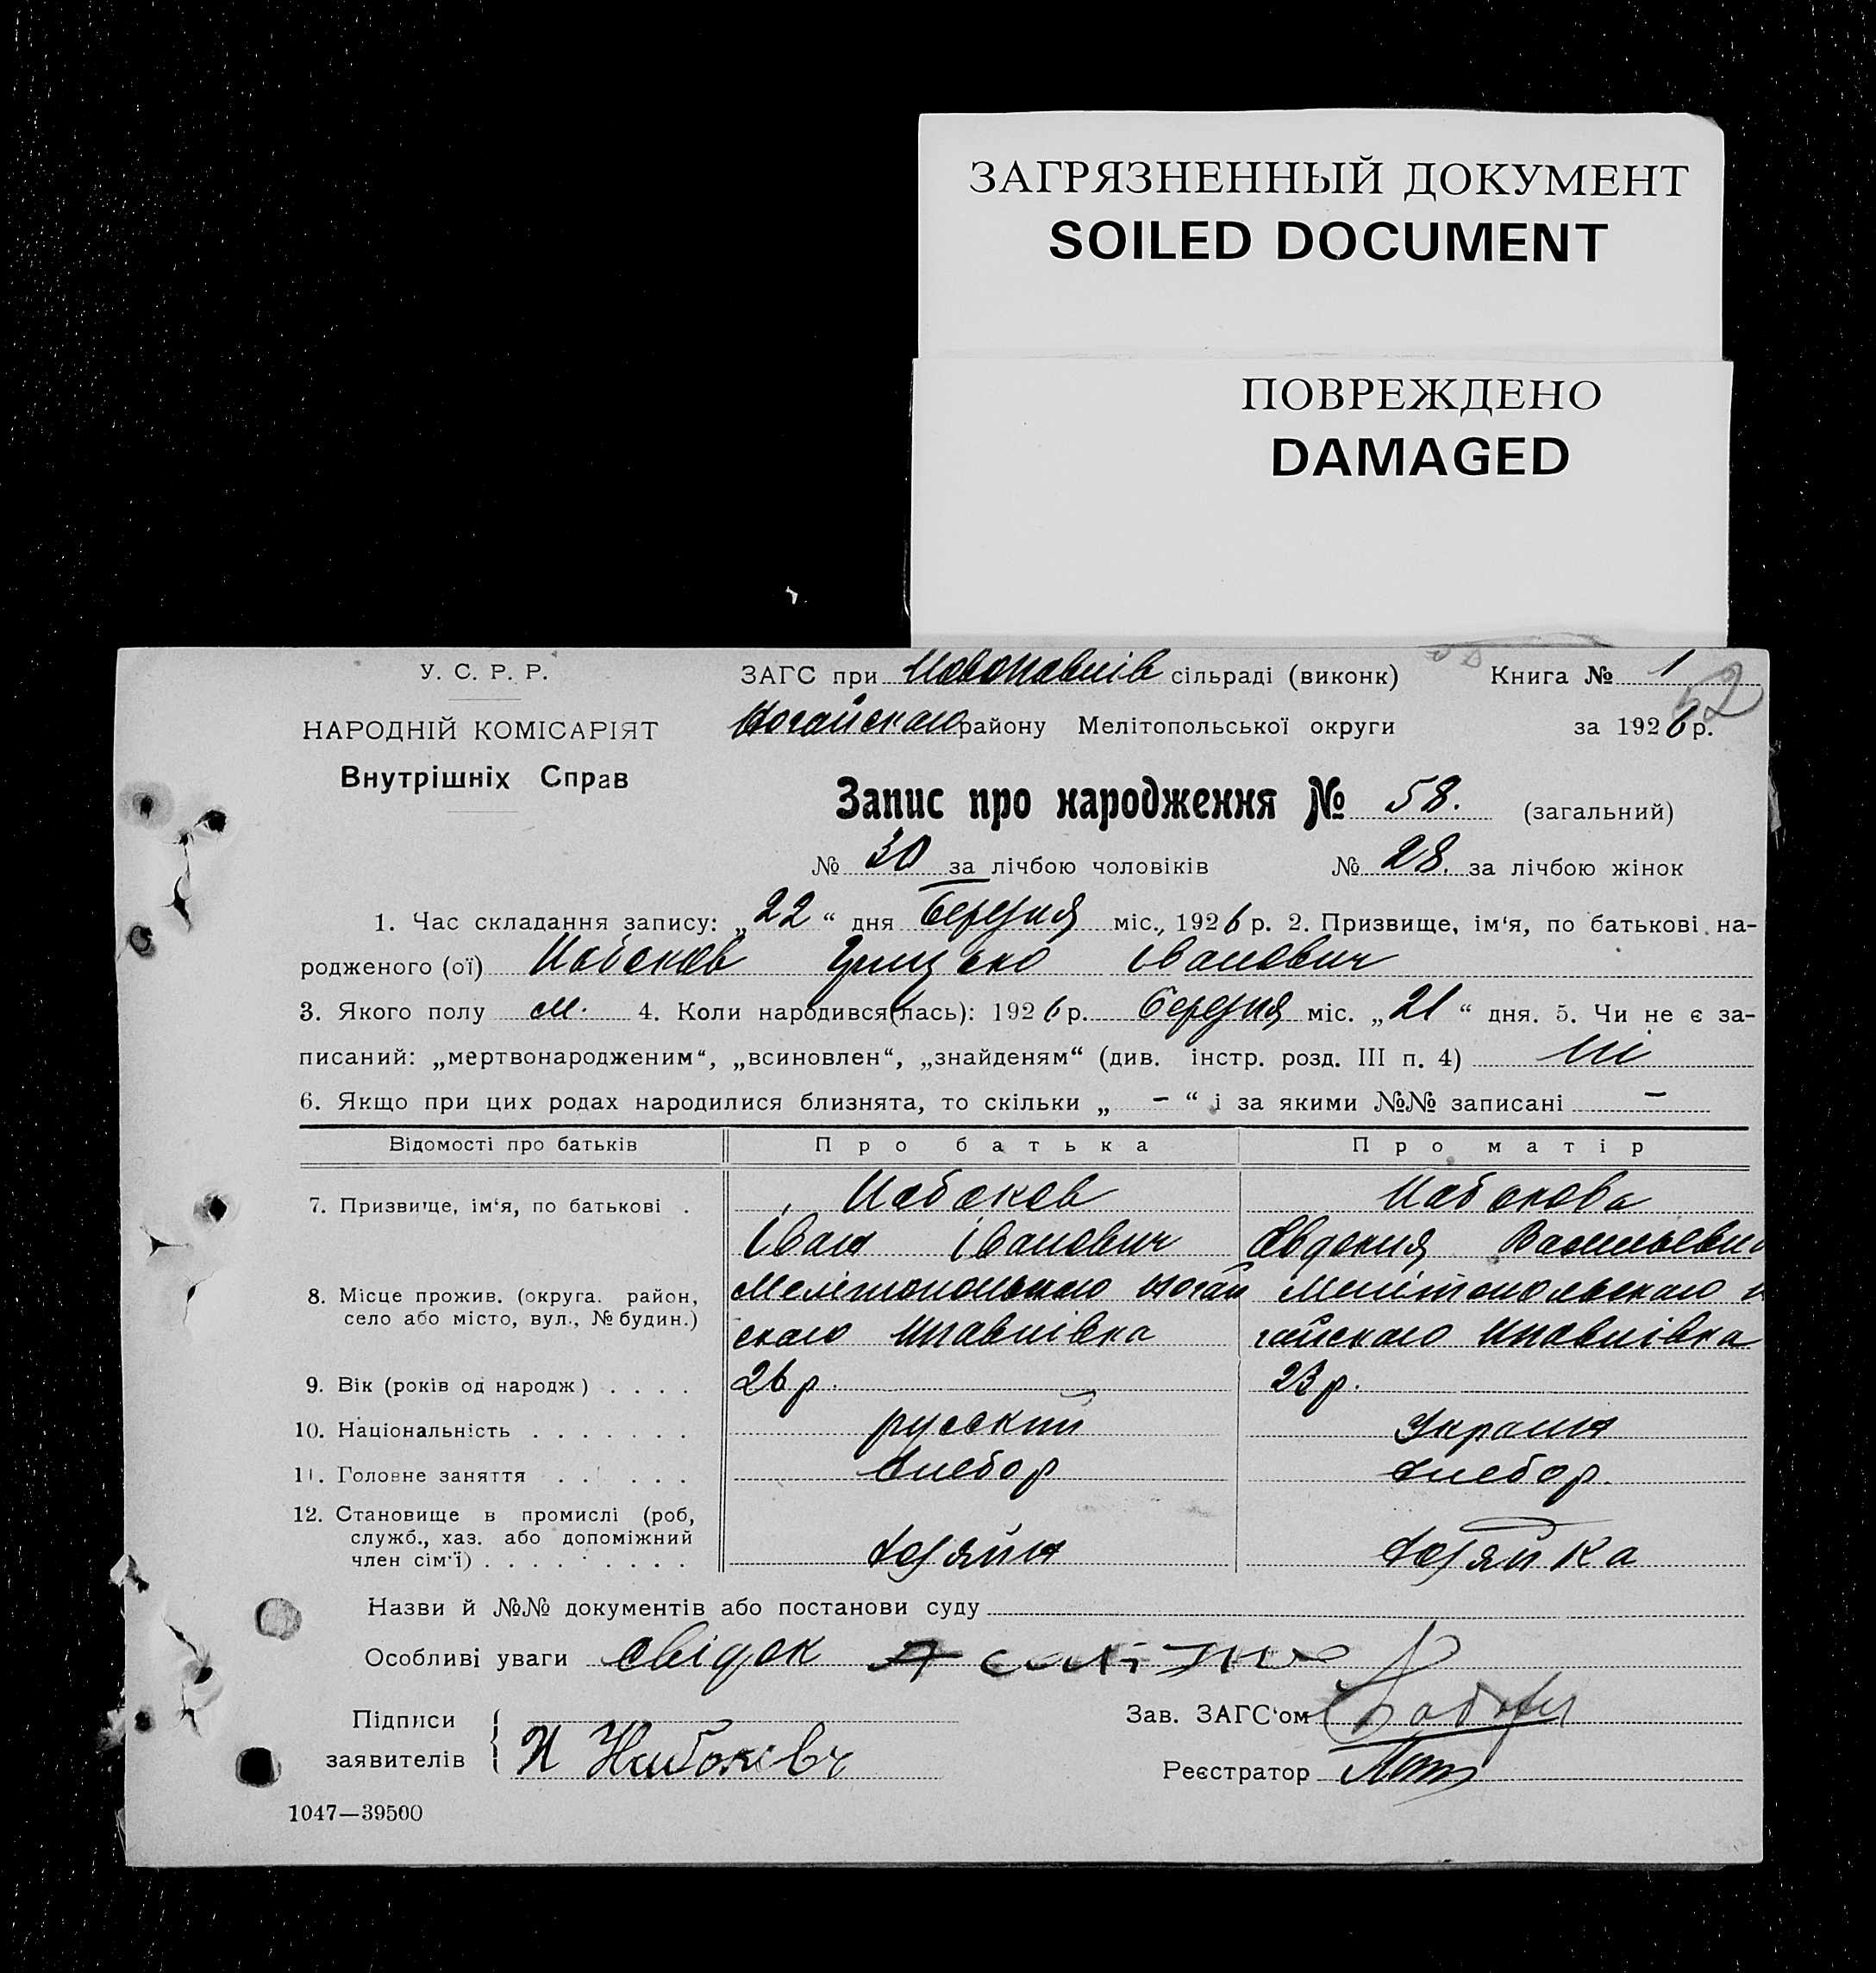 ЗАГРЯЗНЕННЫЙ ДОКУМЕНТ
SOILED DOCUMENT
ПОВРЕЖДЕНО
DAMAGED
У. С. Р. Р.
НАРОДНІЙ КОМІСАРІЯТ
Внутрішніх Справ
ЗАГС при Новопавлів сільраді (виконк) Книга № 1
52
Ногайскаго району Мелітопольської округи за 1926 р.
Запис про народження № 58. (загальний)
№ 30 за лічбою чоловіків № 28. за лічбою жінок
1. Час складання запису: „22“ дня березня міс., 1926 р. 2. Призвище, ім‘я, по батькові на-
родженого (ої) Набоков Грицько Іванович
3. Якого полу м. 4. Коли народився(лась): 1926 р. березня міс. „21“ дня. 5. Чи не є за-
писаний: „мертвонародженим“, „всиновлен“, „знайденям“ (див. інстр. розд. III п. 4) ні
6. Якщо при цих родах народилися близнята, то скільки „ – “ і за якими №№ записані –
Відомості про батьків Про батька Про матір
7. Призвище, ім‘я, по батькові . Набоков Набокова
Іван Іванович Авдокия Васильевн
8. Місце прожив. (округа. район, село або місто, вул., № будин.) Мелітопольскаго Ногай Мелітопольскаго н
скаго Нпавлівка гайскаго Нпавлівка
9. Вік (років од народж) . . . . 26 р. 23 р.
10. Національність . . . . . . . русский Украин
11. Головне заняття . . . . . . хлебор хлебор.
12. Становище в промислі (роб,
служб., хаз. або допоміжний
член сім‘ї) . . . . . . . . . . Хозяйн Хозяйка
Назви й №№ документів або постанови суду
Особливі уваги свідок
Підписи
заявителів И Набоковъ
Зав. ЗАГС‘ом
Реєстратор
1047—39500